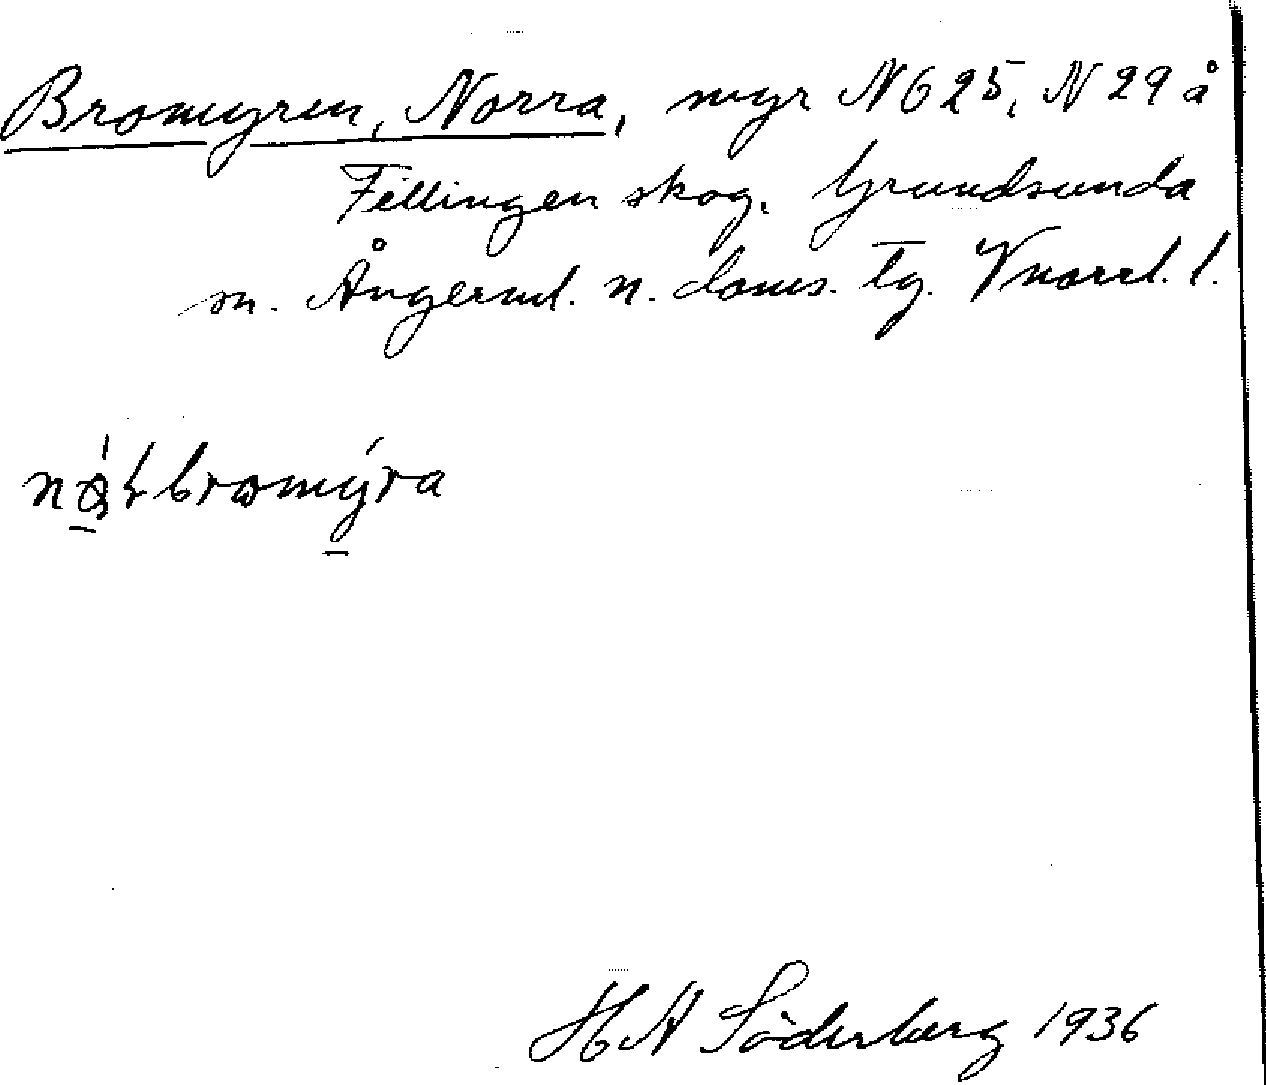 Bromyren, Norra, myr N625, N29 å
Fillingen skog. Grundsunda
sn. Ångerml. n. doms. tg. Vnorrl. l.
bromýra
H A Söderberg 1936